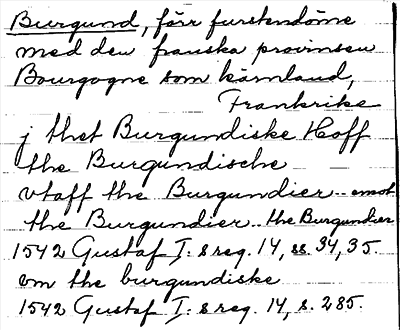 Burgund, förr furstendöme
med den franska provinsen
Bourgogne som kärnland,
Frankrike
j thet Burgundiske Hoff
the Burgundische
vtaff the Burgundier .. emot
the Burgundier .. the Burgundier
1542 Gustaf I. s reg. 14, ss. 34, 35.
om the burgundiske
1542 Gustaf I. s reg. 14, s. 285.